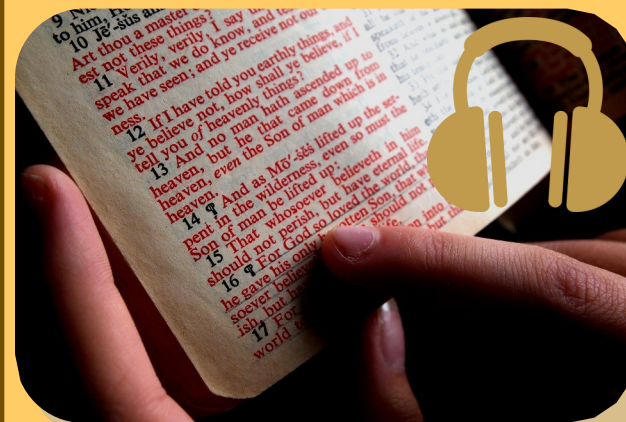 9 Ni
to him, H
10 Jē´-ṣŭs an
Art thou a master
est not these things?
11 Verily, verily, I say un
speak that we do know, and te
we have seen; and ye receive not our
ness.
12 If I have told you earthly things, and
ye believe not, how shall ye believe, if I
tell you of heavenly things?
13 And no man hath ascended up to
heaven, but he that came down from
heaven, even the Son of man which is in
heaven.
14 ¶ And as Mō´-ṣĕṣ lifted up the ser-
pent in the wilderness, even so must the
Son of man be lifted up:
15 That whosoever believeth in him
should not perish, but have eternal life.
16 ¶ For God so loved the world, tha
he gave his only b tten Son, that w
soever believ should not
ish, but h life.
17 For on into
world t but th